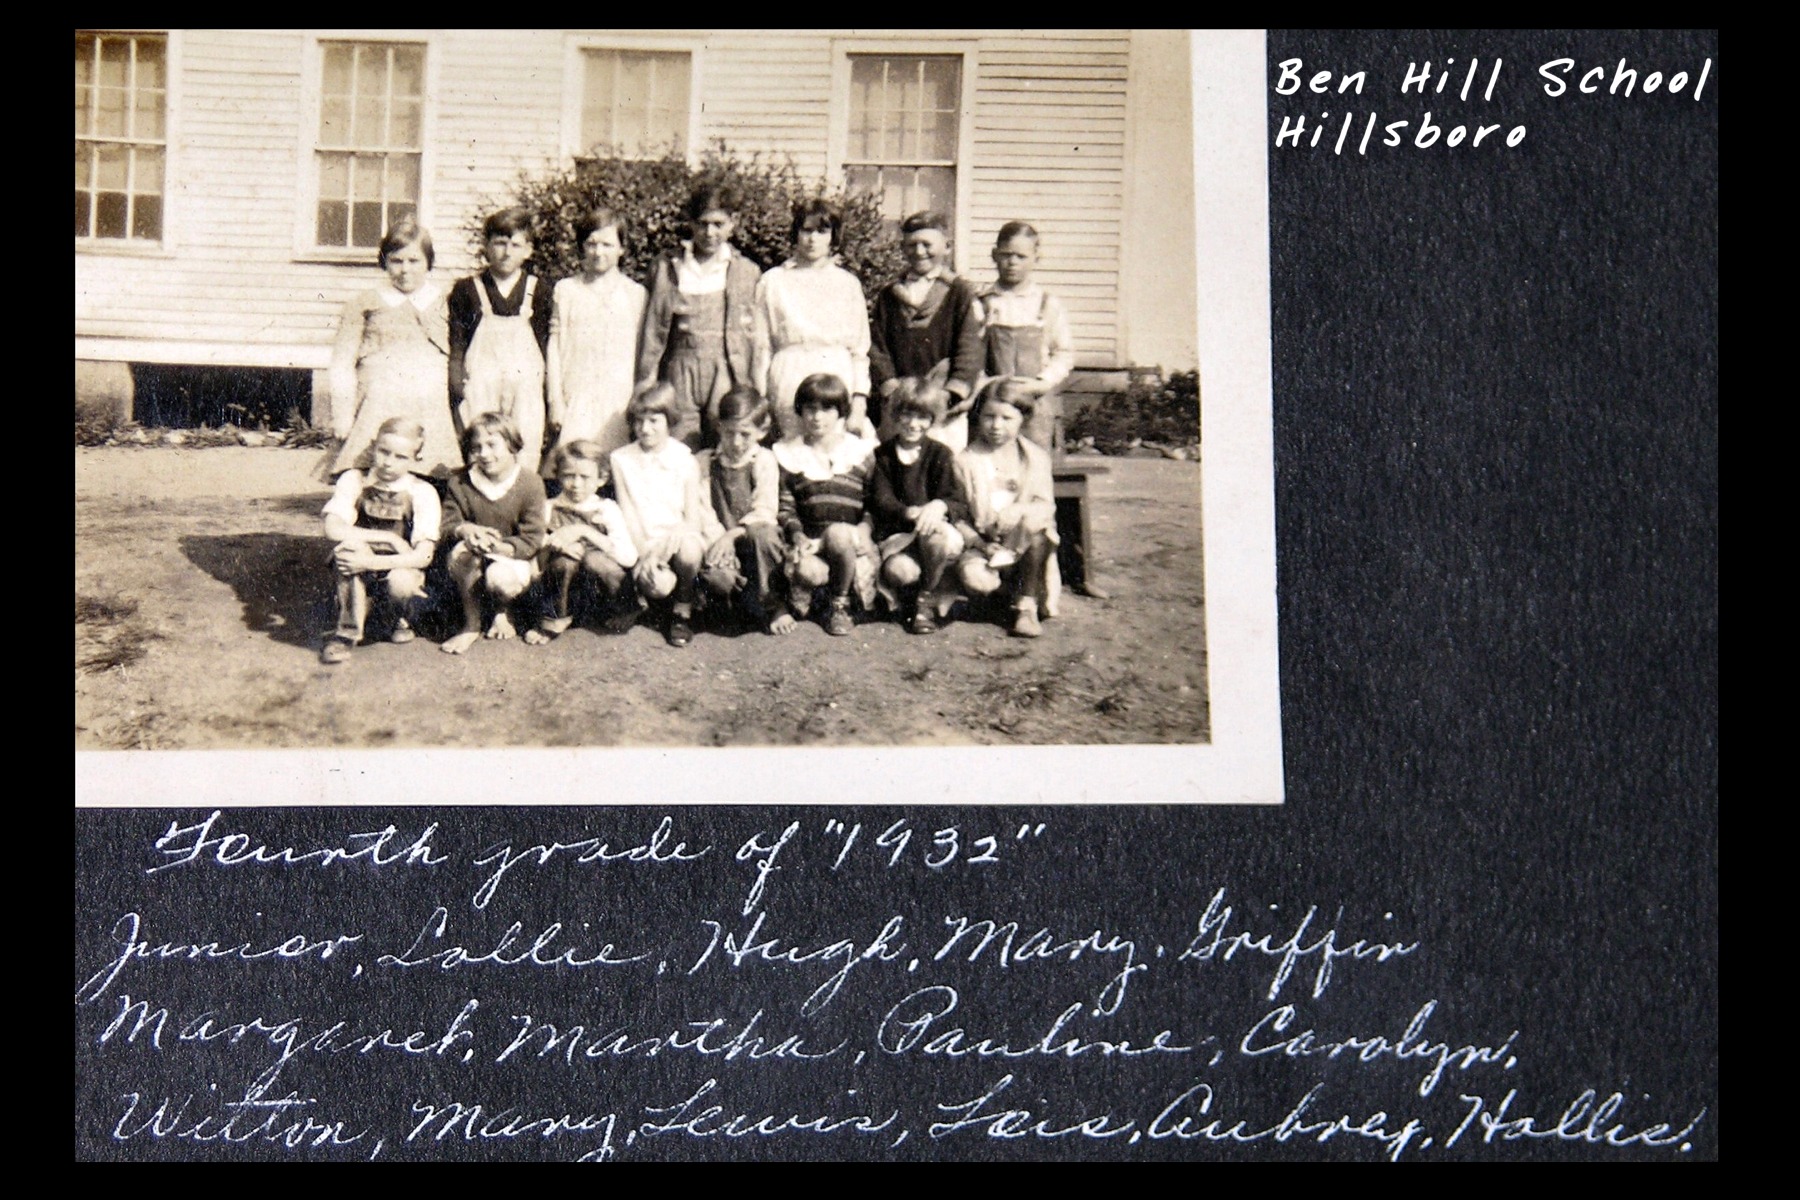 Ben Hill School
Hillsboro
Fourth grade of "1932"
Junior, Lollie, Hugh, Mary, Griffin
Margaret, Martha, Pauline, Carolyn,
Witton, Mary, Lewis, Lois, Aubrey, Hollis.